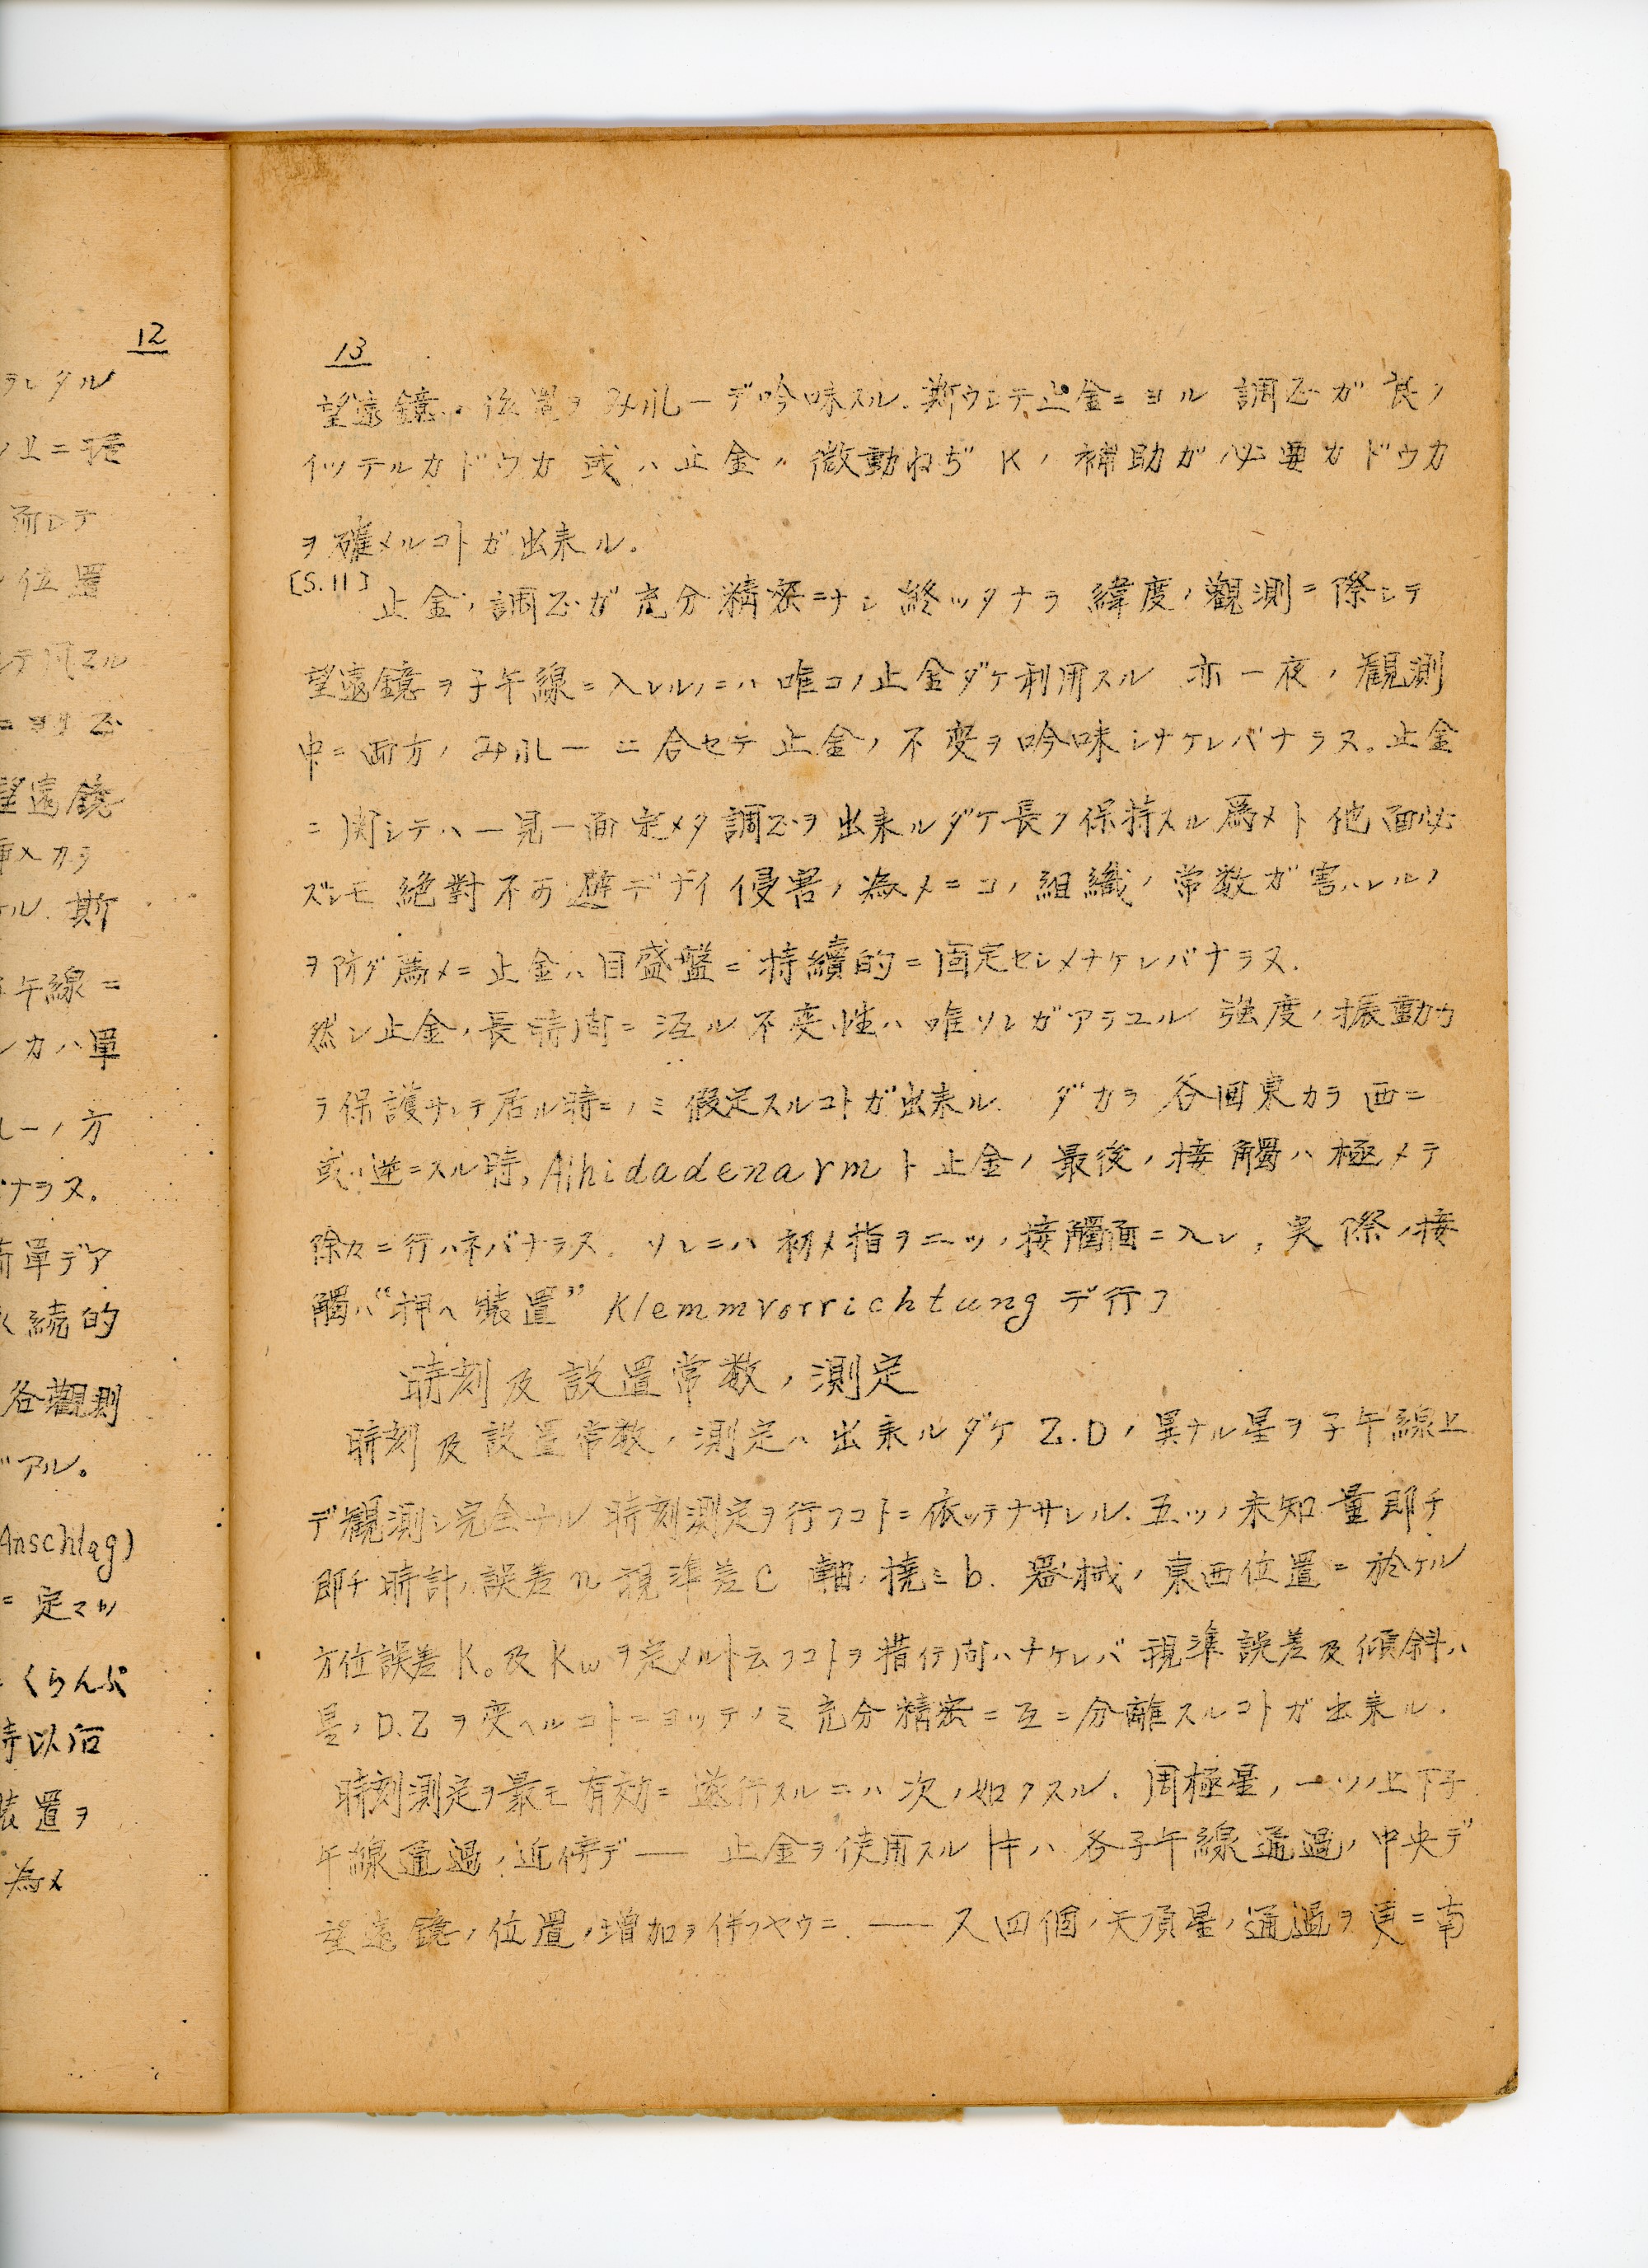 12
ラレタル
位置
望遠鏡
斯
午線ニ
ナラヌ。
続的
各觀測
アル。
Anschlag)
くらんぷ
装置ヲ
為メ
13
望遠鏡ノ位置ヲみれーデ吟味スル. 斯ウシテ止金ニヨル 調正ガ良ク
イッテルカドウカ 或ハ止金ノ微動ねぢ K ノ補助ガ必要カドウカ
ヲ確メルコトガ出来ル。
[S.11] 止金ノ調正ガ充分精密ニナシ終ッタナラ 緯度ノ觀測ニ際シテ
望遠鏡ヲ子午線ニ入レルノニハ唯コノ止金ダケ利用スル 亦一夜ノ観測
中ニ両方ノみれーニ合セテ止金ノ不変ヲ吟味シナケレバナラヌ。止金
ニ関シテハ一見一面定メタ調正ヲ出来ルダケ長ク保持スル為メト他面必
ズシモ絶對不可避デナイ侵害ノ為メニコノ組織ノ常数ガ害ハレルノ
ヲ防グ為メニ止金ハ目盛盤ニ持續的ニ固定セシメナケレバナラヌ.
然シ止金ノ長時間ニ亙ル不変性ハ唯ソレガアラユル強度ノ振動カ
ラ保護サレテ居ル時ニノミ假定スルコトガ出来ル. ダカラ 各回東カラ西ニ
或ハ逆ニスル時, Alhidadenarmト止金ノ最後ノ接觸ハ極メテ
徐々ニ行ハネバナラヌ. ソレニハ初メ指ヲ二ツノ接觸面ニ入レ, 実際ノ接
觸ハ“押ヘ装置” Klemmvorrichtung デ行フ
時刻及設置常数ノ測定
時刻及設置常数ノ測定ハ出来ルダケ Z.D ノ異ナル星ヲ子午線上
デ観測シ完全ナル時刻測定ヲ行フコトニ依ッテナサレル. 五ツノ未知量即チ
即チ時計ノ誤差 n 視準差 C 軸ノ撓ミ b. 器械ノ東西位置ニ於ケル
方位誤差 K。及 Kw ヲ定メルト云フコトヲ措イテ問ハナケレバ視準誤差及傾斜ハ
星ノ D.Z ヲ変ヘルコトニヨッテノミ充分精密ニ互ニ分離スルコトガ出来ル.
時刻測定ヲ最モ有効ニ遂行スルニハ次ノ如クスル. 周極星ノ一ツノ上下子
午線通過ノ近傍デ— 止金ヲ使用スルトキハ各子午線通過ノ中央デ
望遠鏡ノ位置ノ増加ヲ併フヤウニ. — 又四個ノ天頂星ノ通過ヲ更ニ南